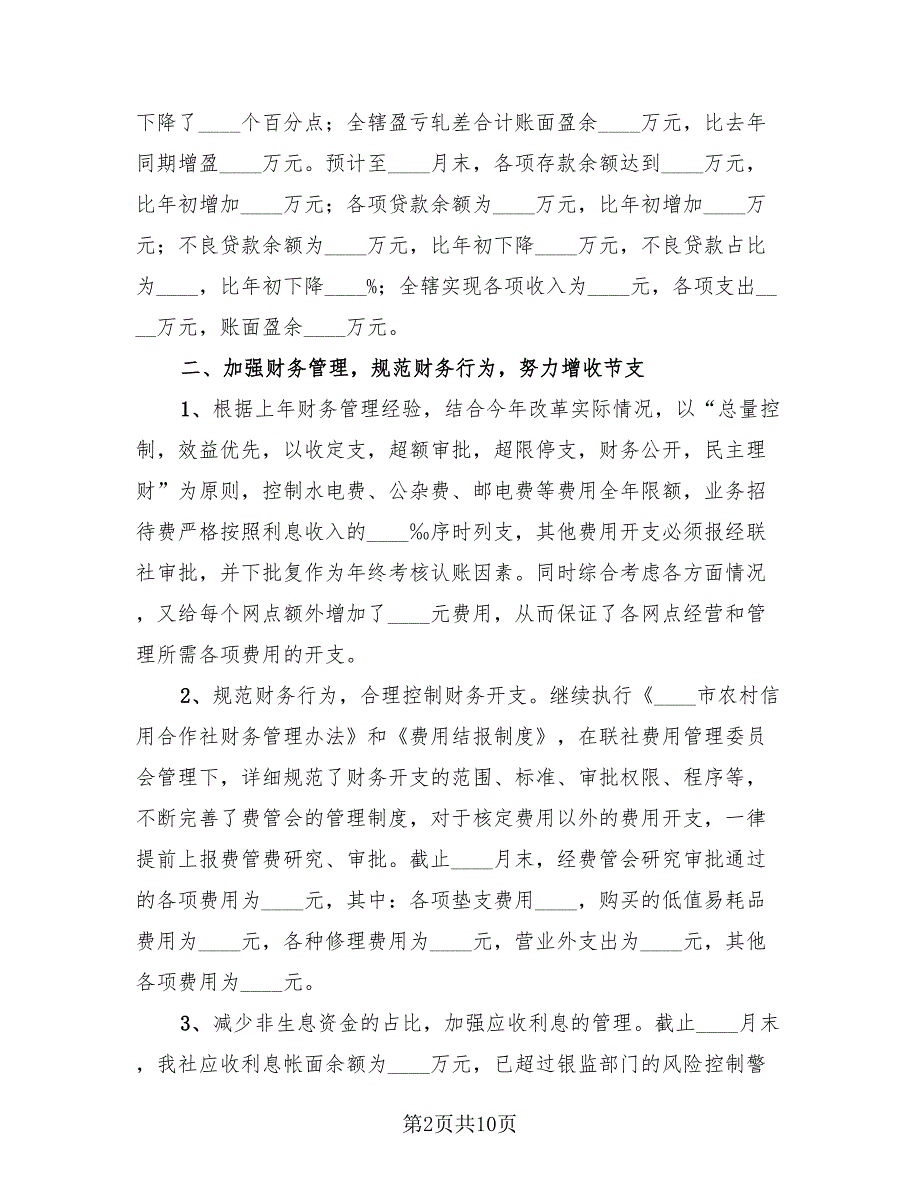 下降了____个百分点；全辖盈亏轧差合计账面盈余____万元，比去年
同期增盈____万元。预计至____月末，各项存款余额达到____万元，
比年初增加____万元；各项贷款余额为____万元，比年初增加____万
元；不良贷款余额为____万元，比年初下降____万元，不良贷款占比
为____，比年初下降____%；全辖实现各项收入为____元，各项支出__
__万元，账面盈余____万元。
二、加强财务管理，规范财务行为，努力增收节支
1、根据上年财务管理经验，结合今年改革实际情况，以“总量控
制，效益优先，以收定支，超额审批，超限停支，财务公开，民主理
财”为原则，控制水电费、公杂费、邮电费等费用全年限额，业务招
待费严格按照利息收入的____‰序时列支，其他费用开支必须报经联
社审批，并下批复作为年终考核认账因素。同时综合考虑各方面情况
，又给每个网点额外增加了____元费用，从而保证了各网点经营和管
理所需各项费用的开支。
2、规范财务行为，合理控制财务开支。继续执行《____市农村信
用合作社财务管理办法》和《费用结报制度》，在联社费用管理委员
会管理下，详细规范了财务开支的范围、标准、审批权限、程序等，
不断完善了费管会的管理制度，对于核定费用以外的费用开支，一律
提前上报费管费研究、审批。截止____月末，经费管会研究审批通过
的各项费用为____元，其中：各项垫支费用____，购买的低值易耗品
费用为____元，各种修理费用为____元，营业外支出为____元，其他
各项费用为____元。
3、减少非生息资金的占比，加强应收利息的管理。截止____月末
，我社应收利息帐面余额为____万元，已超过银监部门的风险控制警
第2页共10页